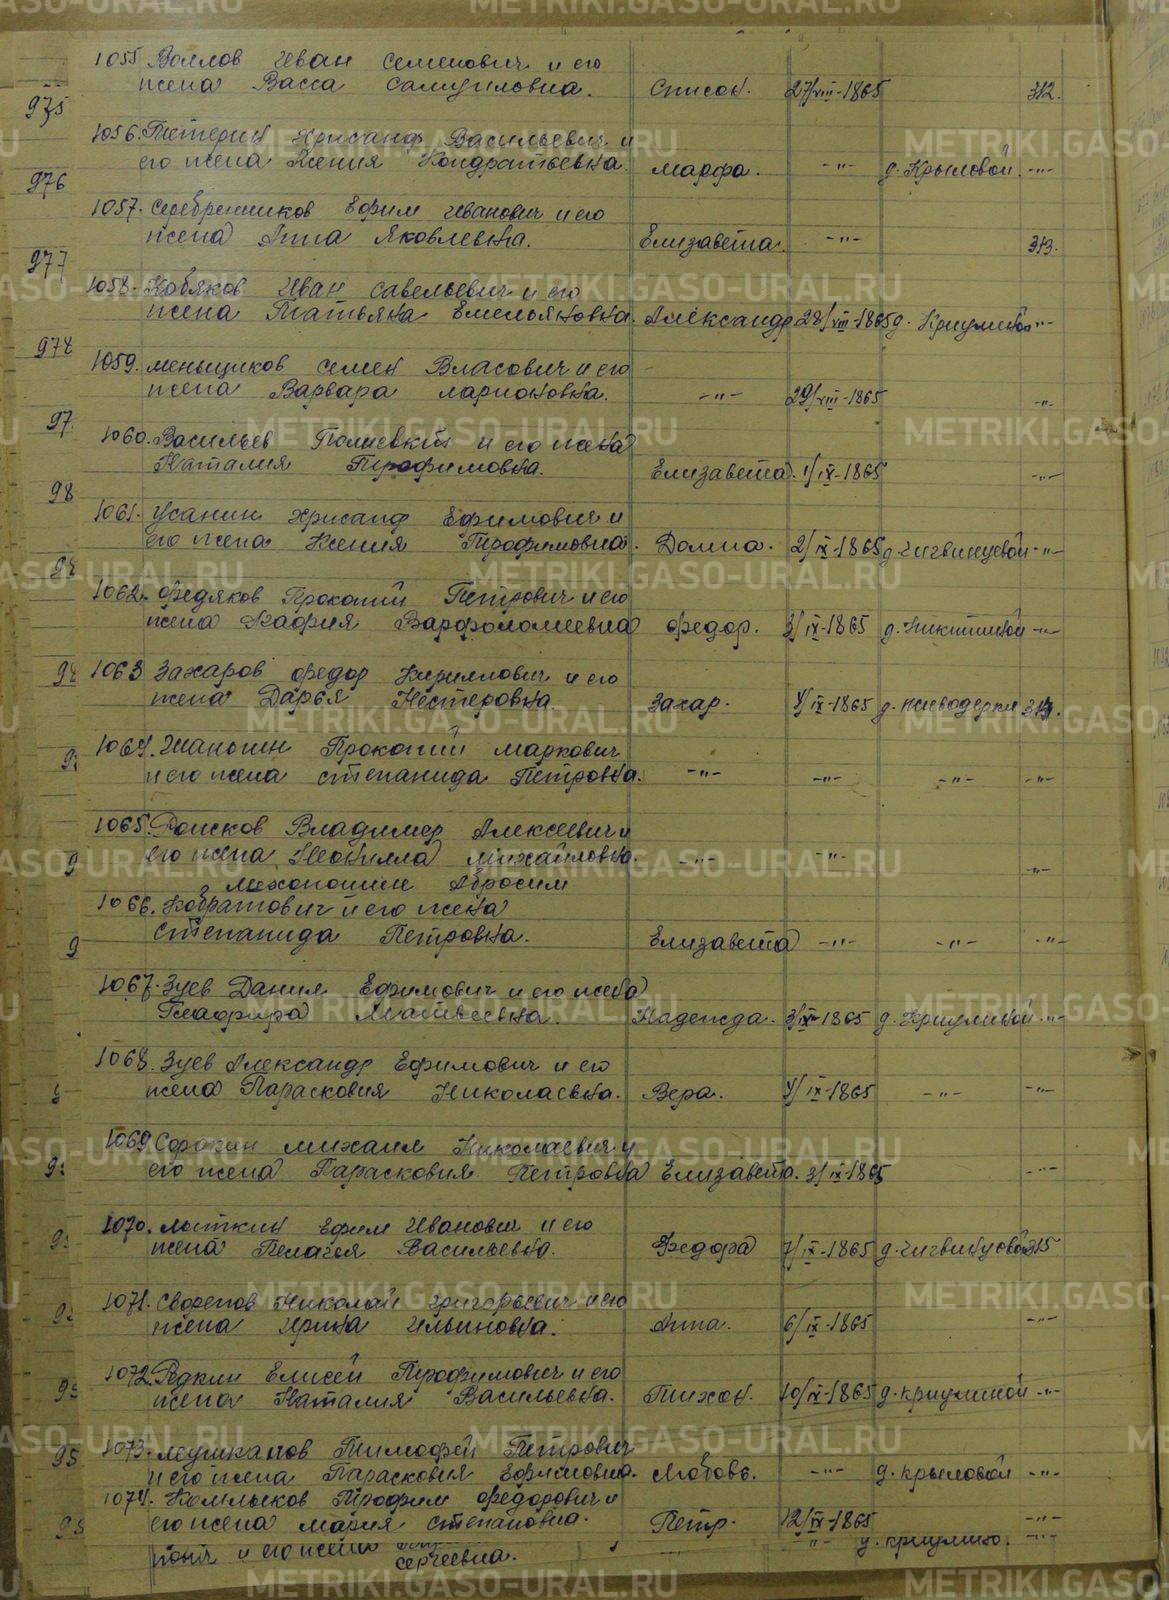 1055 Воллов Иван Семенович и его
жена Васса Самуиловна. Список. 27/VIII-1865 312.
975
1056. Тетерин Хрисанф Васильевич и
его жена Ксения Кондратьевна. Марфа. -"- д. Крыловой. -"-
976
1057. Серебренников Ефим Иванович и его
жена Анна Яковлевна. Елизавета. -"- 313.
977
1058. Кобяков Иван Савельевич и его
жена Татьяна Емельяновна. Александр 28/VIII-1865 д. Криулиной -"-
978
1059. Меньщиков Семен Власович и его
жена Варвара Ларионовна. -"- 29/VIII-1865 -"-
97
1060. Васильев и его жена
Наталия Трофимовна. Елизавета. 1/IX-1865 -"-
98
1061. Усанин Хрисанф Ефимович и
его жена Ксения Трофимовна. Домна. 2/IX-1865 д. Чигвинцевой -"-
1062. Федяков Прокопий Петрович и его
жена Варфоломеевна Федор. 3/IX-1865 д. Никитиной -"-
1063 Захаров Федор Кириллович и его
жена Дарья Нестеровна Захар. 4/IX-1865 д. Живодерки 314.
1064. Шапошин Прокопий Маркович
и его жена Степанида Петровна. -"- -"- -"- -"-
1065. Владимер Алексеевич и
его жена Неонилла Михайловна. -"- -"- -"-
Мехоношин Абросим
1066. Кодратович и его жена
Степанида Петровна. Елизавета -"- -"- -"-
1067. Зуев Данил Ефимович и его жена
Глафира Матвеевна. Надежда. 3/IX-1865 д. Криулиной -"-
1068. Зуев Александр Ефимович и его
жена Парасковия Николаевна. Вера. 4/IX-1865 -"- -"-
1069 Сорокин Михаил Николаевич и
его жена Парасковия Петровна Елизавета. 3/IX-1865 -"-
1070. Латкин Ефим Иванович и его
жена Пелагея Васильевна. Федора 7/IX-1865 д. Чигвинцовой 315
1071. Николай Григорьевич и его
жена Ирина Ильиновна. Анна. 6/IX-1865 -"-
1072. Редкин Елисей Трофимович и его
жена Наталия Васильевна. Тихон. 10/IX-1865 д. Криулиной -"-
1073. Мушкалов Тимофей Петрович
и его жена Парасковия Ефимовна. Любовь. -"- д. Крыловой -"-
1074. Трофим Федорович и
его жена Мария Степановна. Петр. 12/IX-1865 -"-
и его жена -"- д. Криулино. -"-
Сергеевна.
METRIKI.GASO-URAL.RU